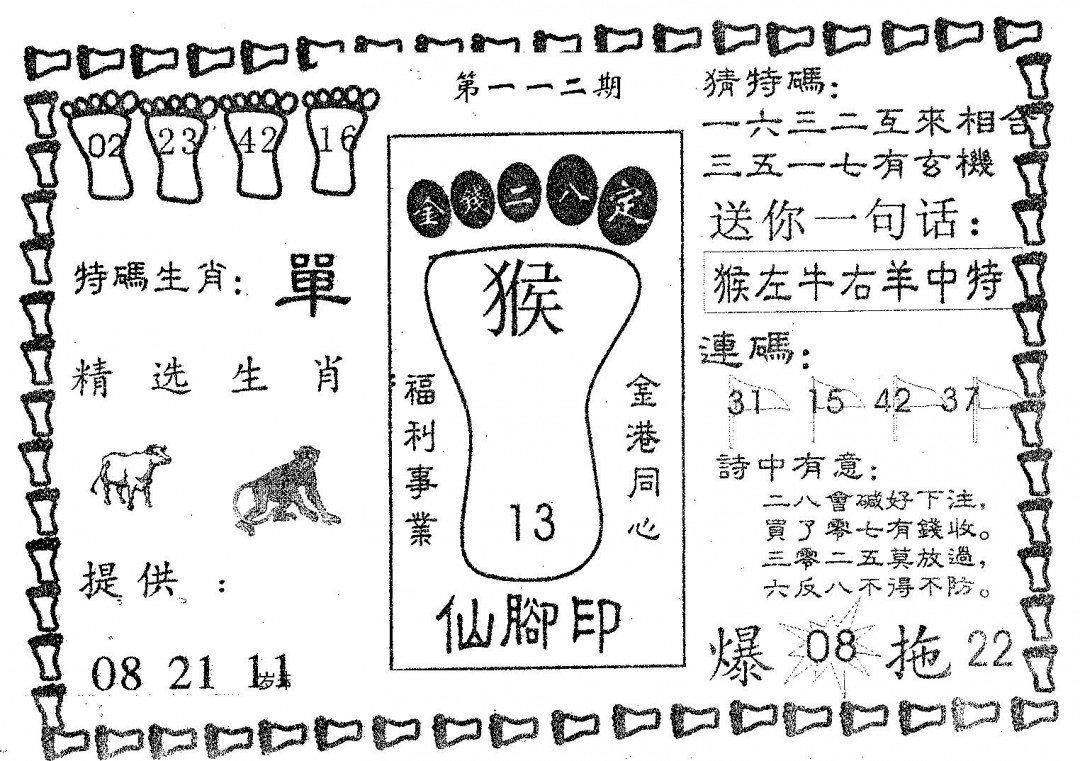 第一一二期
02 23 42 16
特碼生肖：單
精选生肖
提供：
08 21 11
金錢二八定
猴
福利事業
金港同心
13
仙腳印
猜特碼：
一六三二互來相合
三五一七有玄機
送你一句话：
猴左牛右羊中特
連碼：
31 15 42 37
詩中有意：
二八會碱好下注，
買了零七有錢收。
三零二五莫放過，
六反八不得不防。
爆 08 拖 22